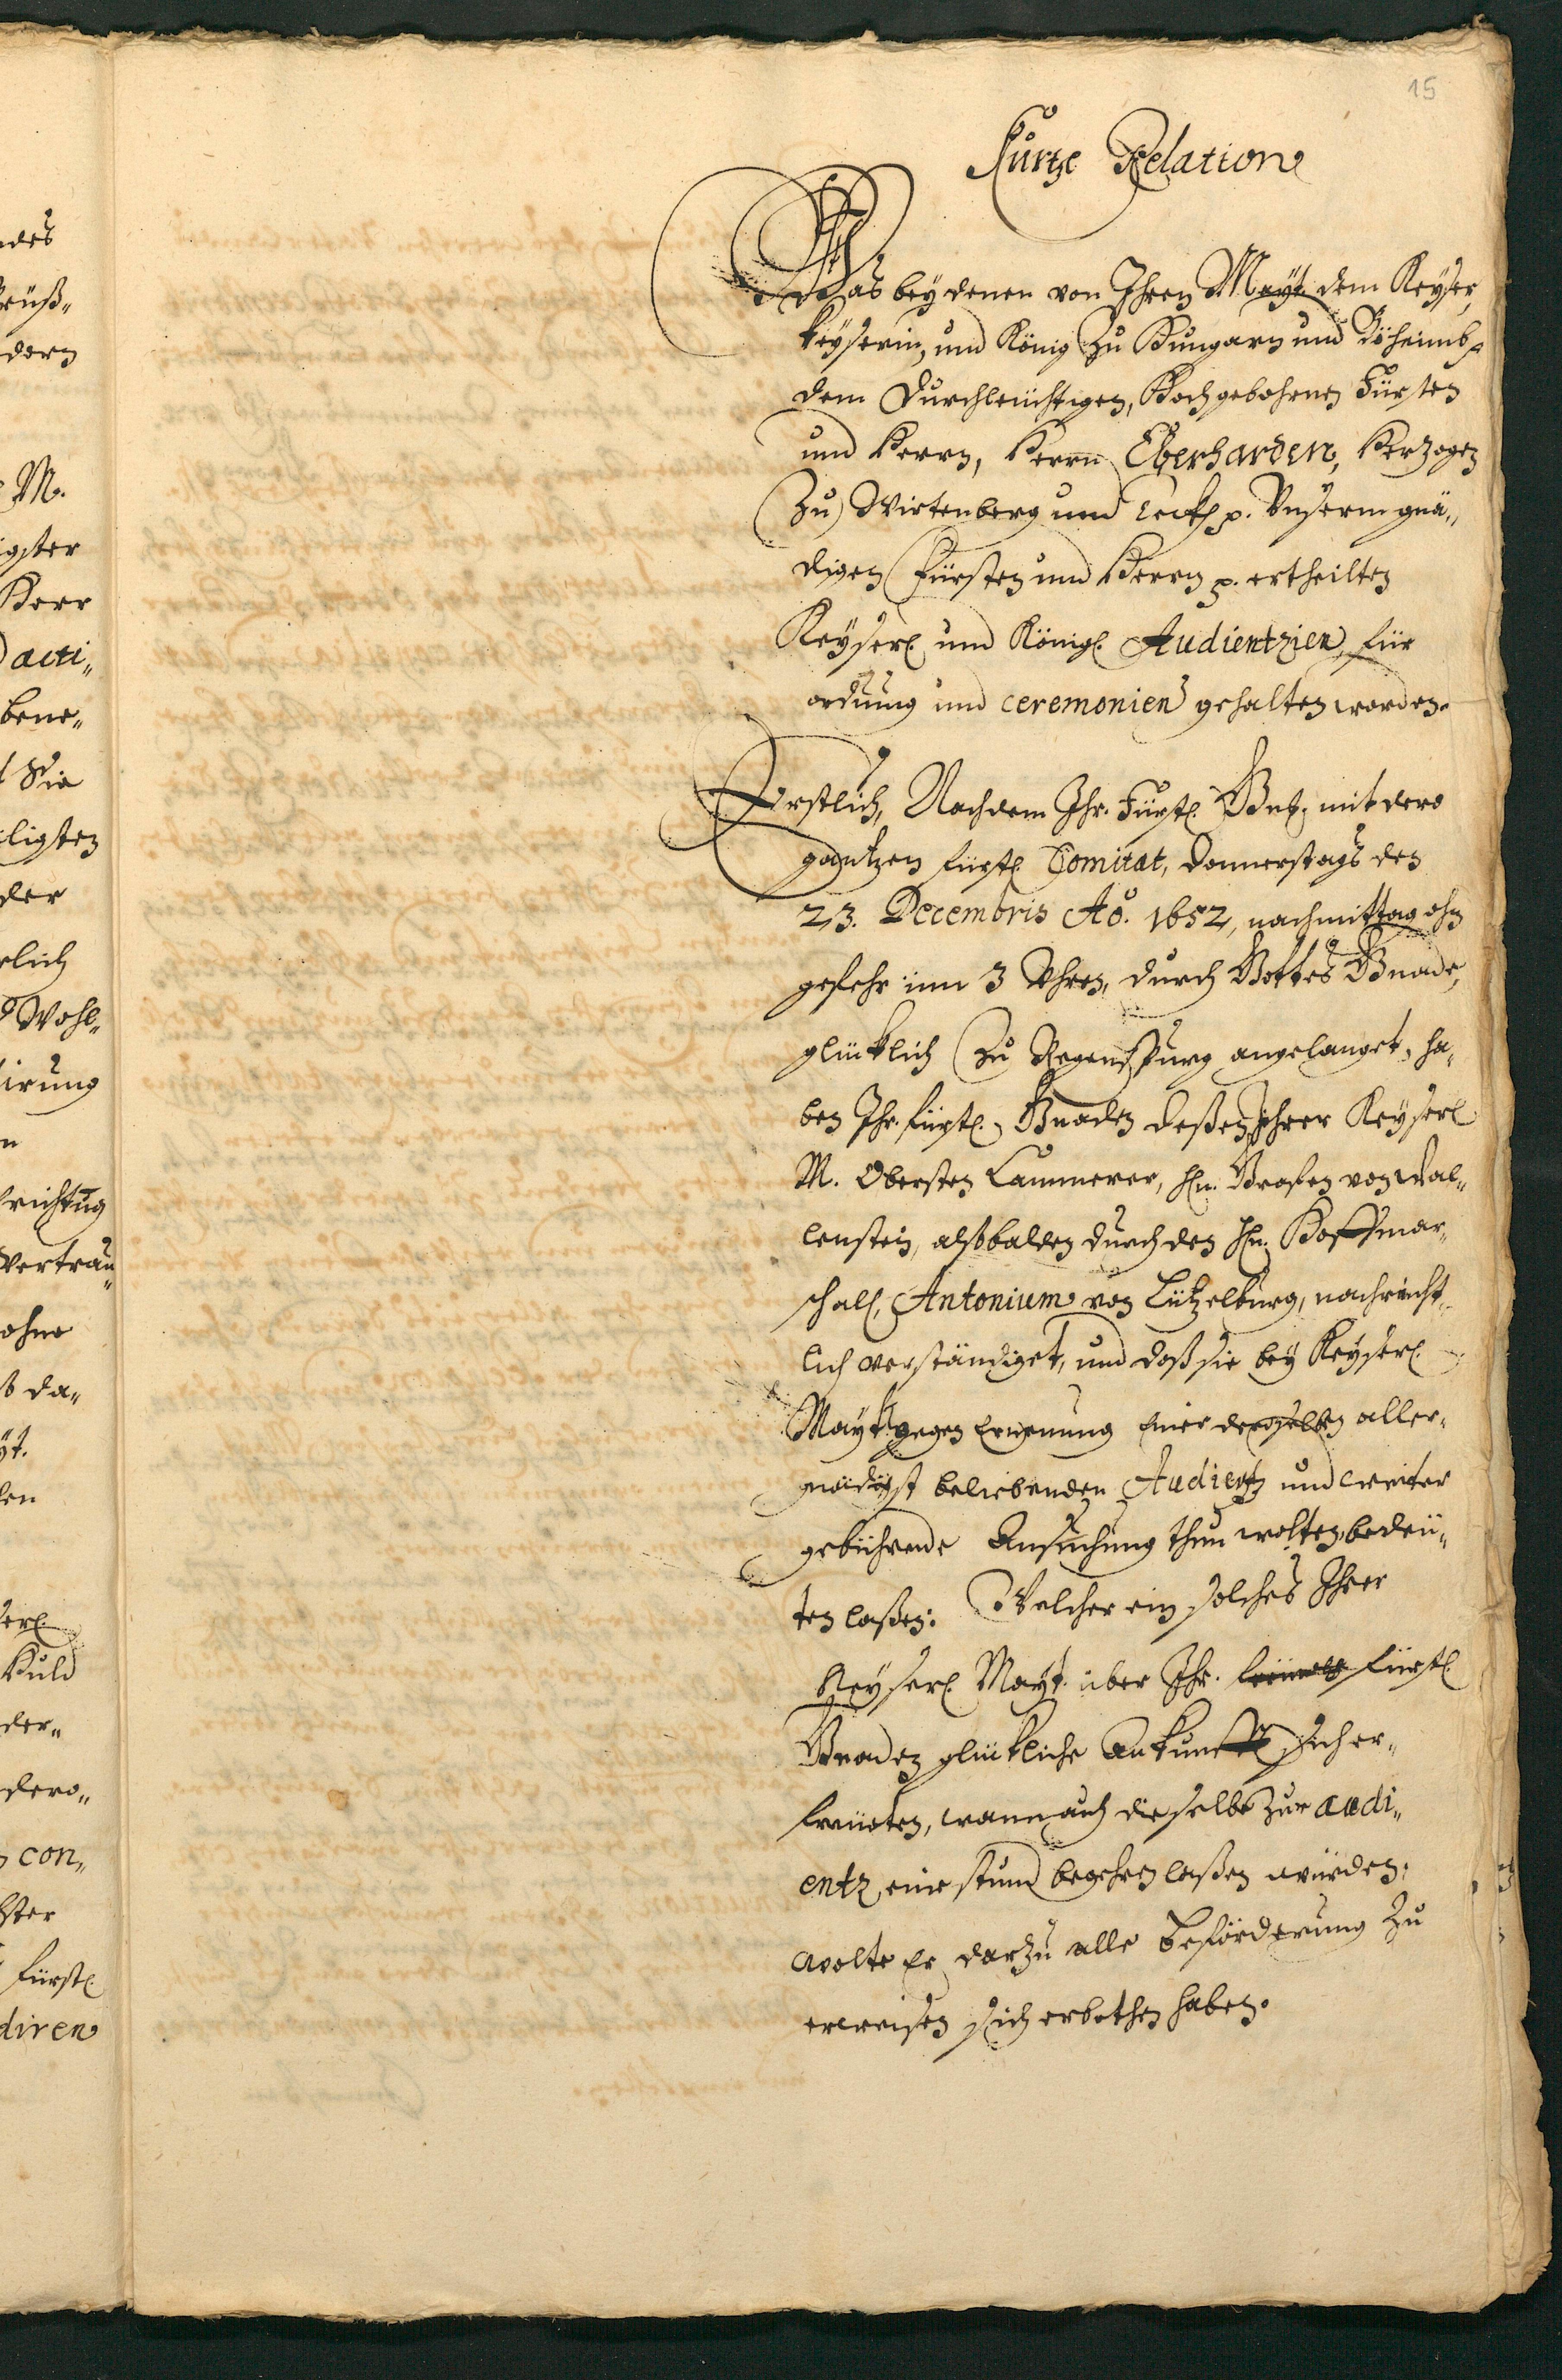 15
Kurtze Relation
Was bey denen von Ihren Mayt. dem Keyser,
Keyserin, und König Zu Hungarn und Böheimb p
dem Durchleüchtigen, Hochgebohrnen Fürsten
und Herrn, Herrn Eberharden, Hertzogen
Zu Wirtenberg und Teckh p. Unserm gnä„
digen Fürsten und Herrn p. ertheilten
Keyserl. und Königl. Audientzien, für
ordnung und ceremonien gehalten worden.
Erstlich, Nachdem Ihr. Fürstl. Gnd. mit dero
gantzen fürstl. Comitat, Donnerstags den
23. Decembris Ao. 1652, nachmittag ohn
gefehr umb 3 Uhren, durch Gottes Gnade,
glücklich Zu Regenspurg angelanget, ha„
ben Ihr. fürstl. Gnaden deßen Ihrer Keyserl.
M. Obersten Cammerer, Hn. Grafen von Wal„
lenstein, alßbalden durch den Hn. Hoffmar„
schall, Antonium von Lützelburg, nachricht„
lich verständiget, und daß sie bey Keyserl.
Mayt. gegen Ernennung einer derselben aller„
gnädigst beliebenden Audientz und weiter
gebührende Ansuchung thun wolten, bedeü„
ten laßen: Welcher ein solches Ihrer
Keyserl. Mayt. über Ihr. fürstl.
Gnaden glückliche Ankunfft sich er„
freüeten, wann auch dieselbe zur audi„
entz, eine stund begehren laßen würden,
wolte Er, darzu alle beförderung Zu
erweisen sich erbothen haben.
ndes
dern
M.
igster
Herr
acti„
bene„
Sie
ligsten
der
rlich
Wohl„
irung
n
richtung
vertrau„
ohne
ß da„
yt.
len
serl.
Huld
der„
dero„
con„
ster
fürstl.
diren